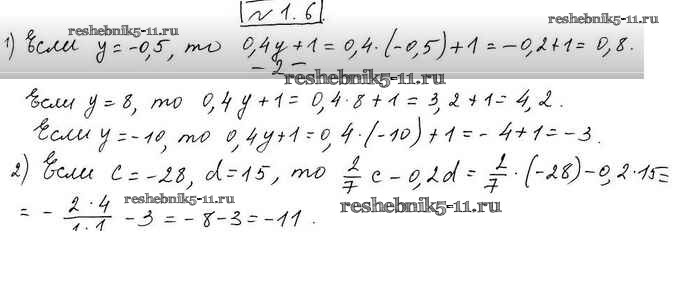 № 1.6.
reshebnik5-11.ru reshebnik5-11.ru
1) Если y = -0,5, то 0,4y + 1 = 0,4 · (-0,5) + 1 = -0,2 + 1 = 0,8.
- 2 -
reshebnik5-11.ru
Если y = 8, то 0,4y + 1 = 0,4 · 8 + 1 = 3,2 + 1 = 4,2.
Если y = -10, то 0,4y + 1 = 0,4 · (-10) + 1 = -4 + 1 = -3.
2) Если c = -28, d = 15, то 2/7 c - 0,2d = 2/7 · (-28) - 0,2 · 15 =
= - 2·4/1·1 - 3 = -8 - 3 = -11.
reshebnik5-11.ru reshebnik5-11.ru